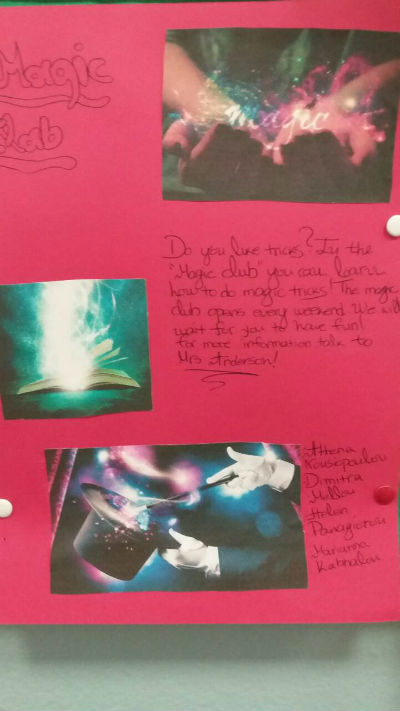 Magic
Club
magic
Do you like tricks? In the
"Magic club" you can learn
how to do magic tricks! The magic
club opens every weekend. We will
wait for you to have fun!
for more information talk to
Mrs Anderson!
Athena
Dimitra
Mallou
Helen
Panagiotou
Marianna